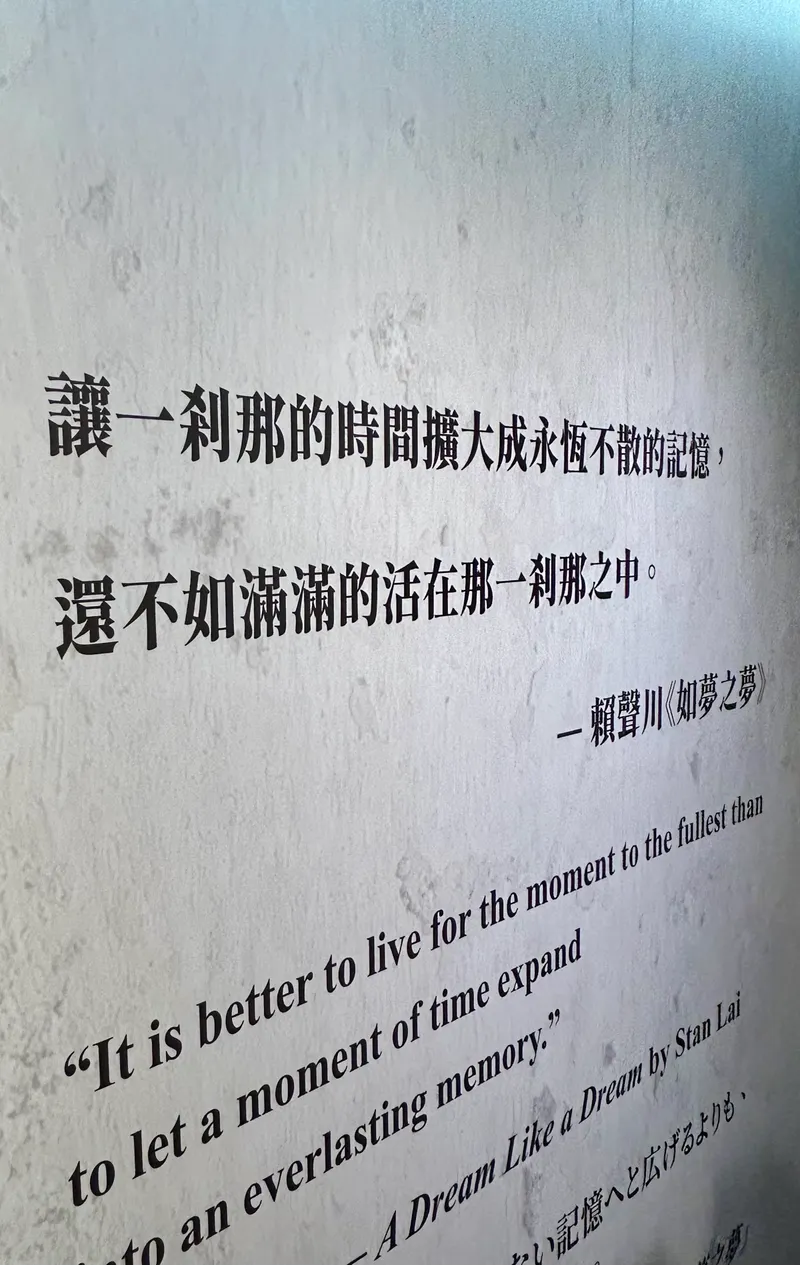 讓一剎那的時間擴大成永恆不散的記憶，
還不如滿滿的活在那一剎那之中。
— 賴聲川《如夢之夢》
“It is better to live for the moment to the fullest than
to let a moment of time expand
into an everlasting memory.”
— A Dream Like a Dream by Stan Lai
ない記憶へと広げるよりも、
之夢」